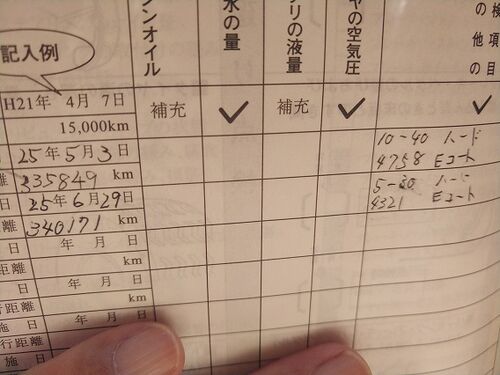 ンオイル
水の量
リの液量
ヤの空気圧
の検
他項
の目
記入例
H21年 4月 7日 補充 ✓ 補充 ✓ ✓
15,000km
25年5月3日 10-40 ハード
335849 km 4758 Eコート
日 25年6月29日 5-30 ハード
離 340171 km 4321 Eコート
日 年 月 日
距離 km
日 年 月 日
行距離 km
施 日 年 月 日
行距離
施 日